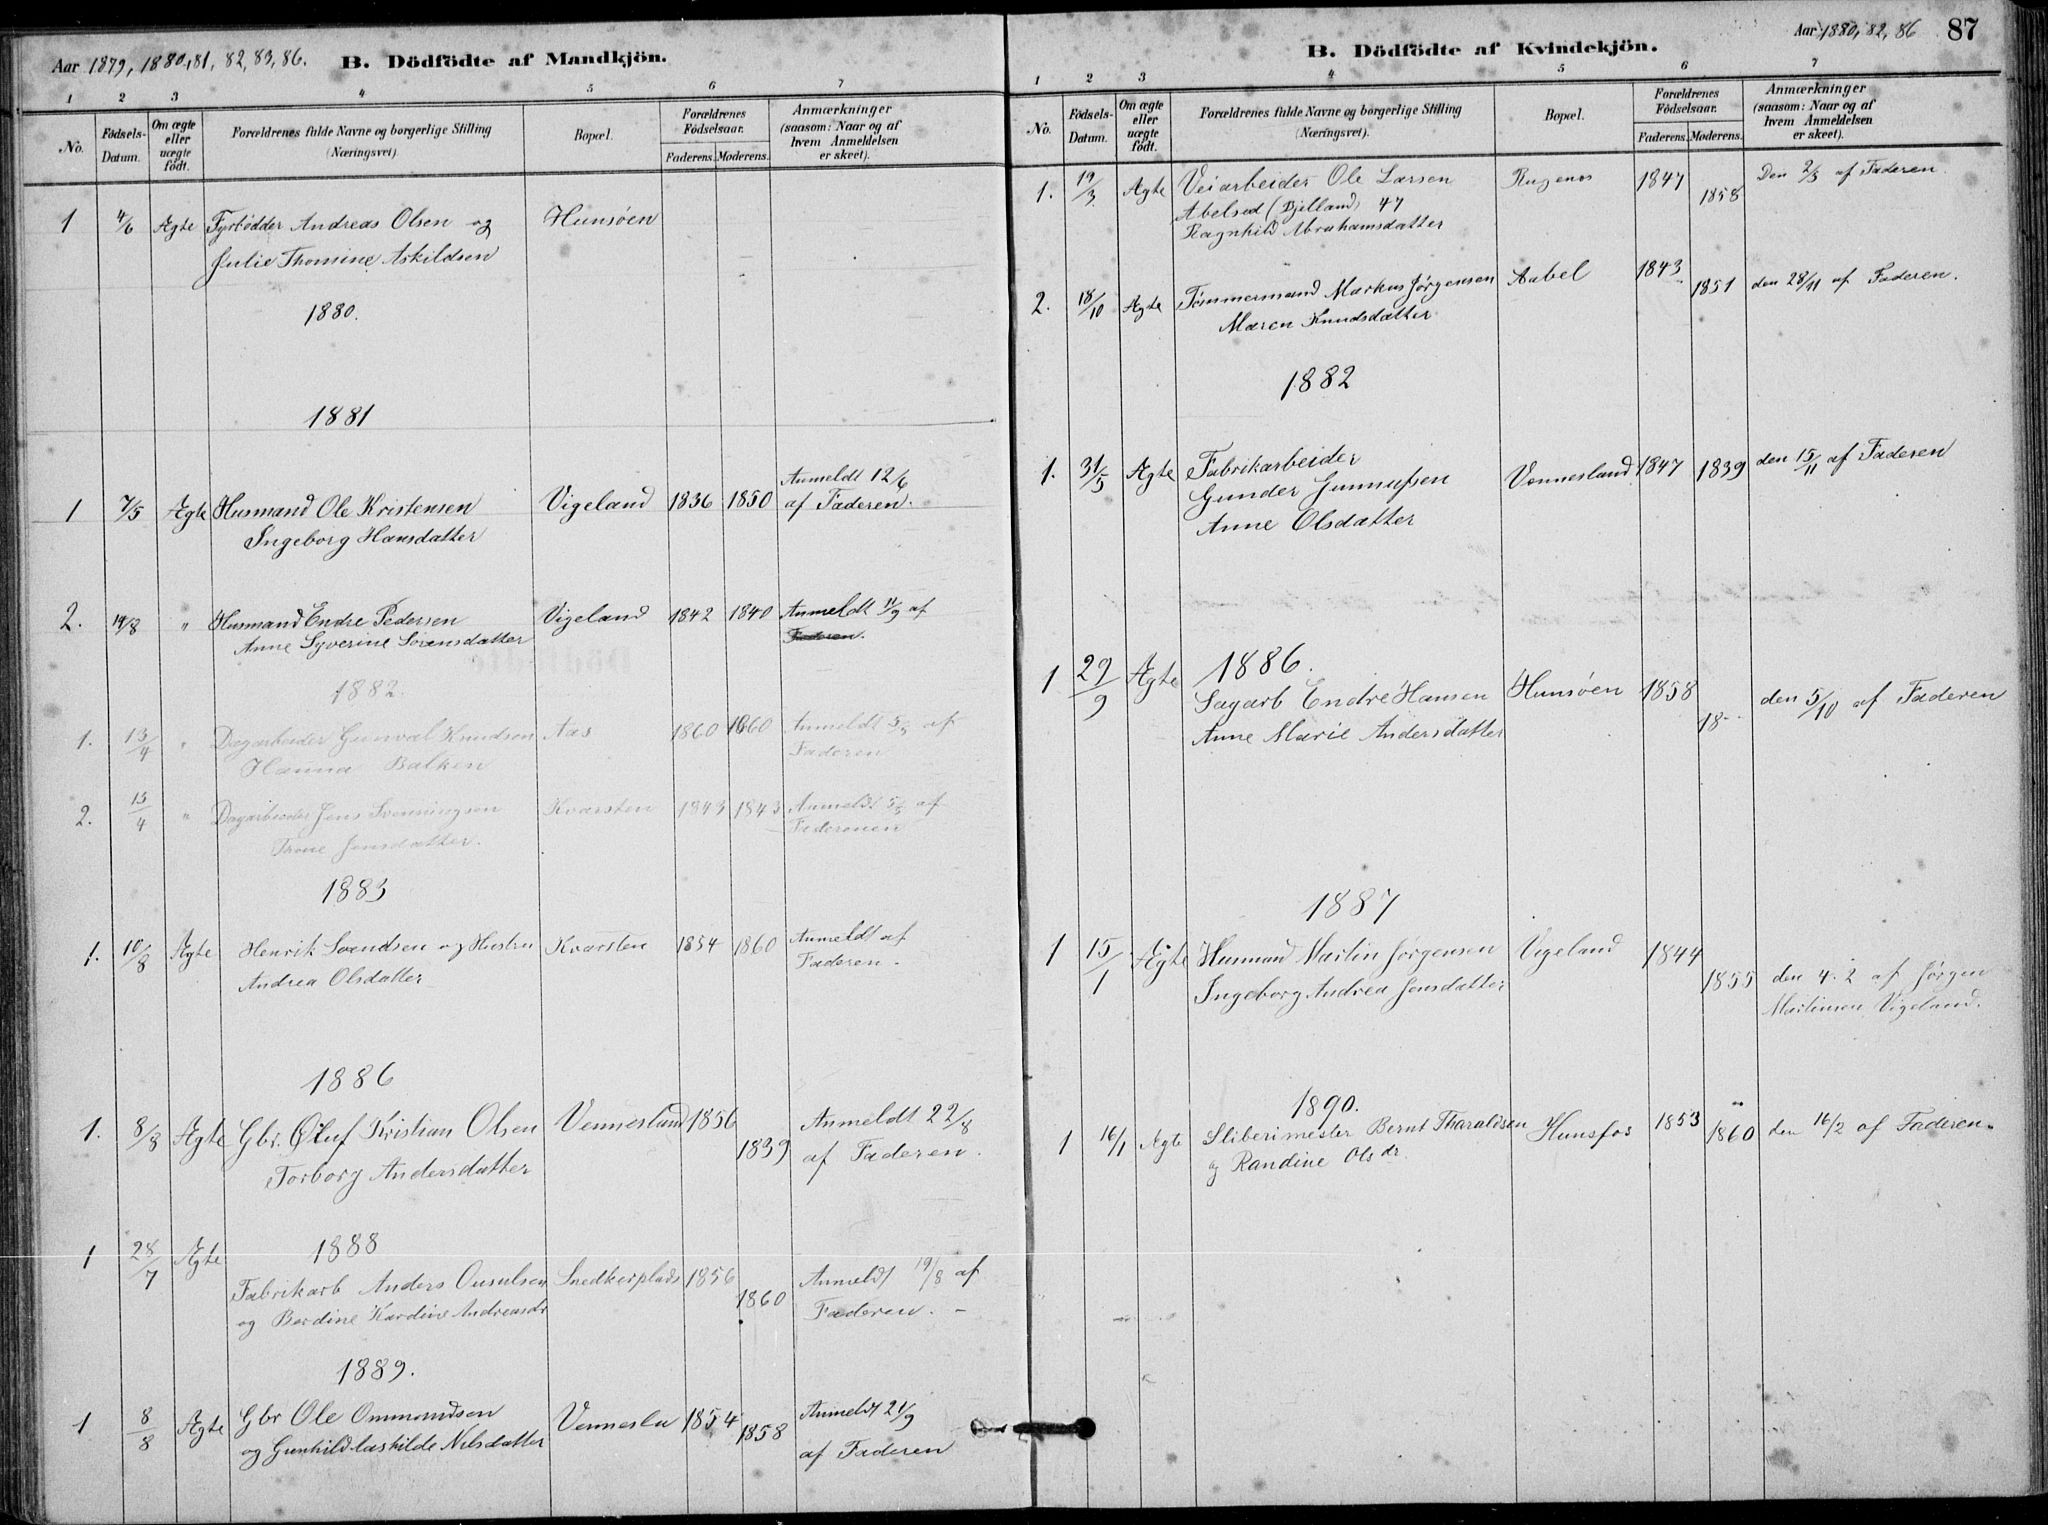 Aar 1879, 1880, 81, 82, 83, 86. B. Dödfödte af Mandkjön.
1 2 3 4 5 6 7
No. Födsels-Datum. Om ægte eller uægte födt. Forældrenes fulde Navne og borgerlige Stilling (Næringsvei). Bopæl. Forældrenes Födselsaar. Faderens. Moderens. Anmærkninger (saasom: Naar og af hvem Anmeldelsen er skeet).
1 4/6 Ægte Fyrbødder Andreas Olsen og Hunsøen
Julie Thomine Askildsen
1880.
1881
Anmeldt 12/6
1 7/5 Ægte Husmand Ole Kristensen Vigeland 1836 1850 af Faderen.
Ingeborg Hansdatter
2. 14/8 " Husmand Endre Pedersen Vigeland 1842 1840 Anmeldt 11/9 af
Anne Syverine Sørensdatter Faderen.
1882.
1. 13/4 " Dagarbeider Gunval Knudsen Aas 1860 1860 Anmeldt af
Hanna Balken Faderen
2. 13/4 " Dagarbeider Jens Svenningsen Kvarsten 1843 1843 Anmeldt af
Thone Jensdatter. Faderenen
1883
1. 10/8 Ægte Henrik Svendsen og Hustru Kvarsten 1854 1860 Anmeldt af
Andrea Olsdatter Faderen.
1886
1. 8/8 Ægte Gbr. Oluf Kristian Olsen Vennesland 1856 1839 Anmeldt 22/8
Torborg Andersdatter af Faderen.
1888
1 28/7 Ægte Fabrikarb Anders Snedkerplads 1856 1860 Anmeldt 19/8 af
og Berdine Kardine Andreasdr Faderen. -
1889.
1 8/8 Ægte Gbr Ole Ommundsen Vennesla 1854 1858 Anmeldt 21/9
og Gunhild Nilsdatter af Faderen
Aar 1880, 82, 86 87
B. Dödfödte af Kvindekjön.
1 2 3 4 5 6 7
No. Födsels-Datum. Om ægte eller uægte födt. Forældrenes fulde Navne og borgerlige Stilling (Næringsvei). Bopæl. Forældrenes Födselsaar. Faderens. Moderens. Anmærkninger (saasom: Naar og af hvem Anmeldelsen er skeet).
1. 19/3 Ægte Veiarbeider Ole Larsen 1847 1858 Den 2/5 af Faderen.
Abelsed (Bjelland) 47
Ragnhild Abrahamsdatter
2. 18/10 Ægte Tømmermand Markus Jørgensen Aabel 1843 1851 den 28/11 af Faderen.
Maren Knudsdatter
1882
1. 31/5 Ægte Fabrikarbeider Vennesland 1847 1839 den 15/11 af Faderen
Gunder Gunnufsen
Anne Olsdatter
1886.
1 29/9 Ægte Sagarb Endre Hansen Hunsøen 1858 18-- den 5/10 af Faderen
Anne Marie Andersdatter
1887
1 15/1 Ægte Husmand Martin Jørgensen Vigeland 1844 1855 den 4. 2 af Jørgen
Ingeborg Andrea Jensdatter Martinsen Vigeland.
1890.
1 16/1 Ægte Sliberimester Bernt Tharaldsen Hunsfos 1853 1860 den 16/2 af Faderen.
og Randine Olsdr.